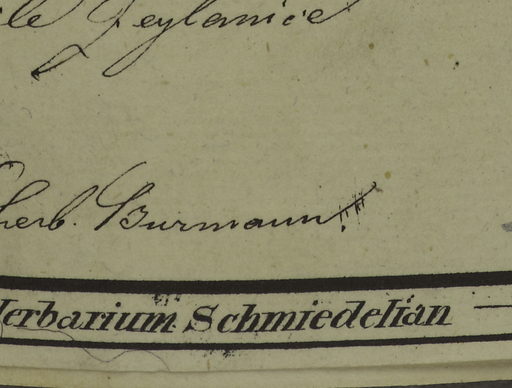 Zeylanice
herb. Burmann.
Herbarium Schmiedelian